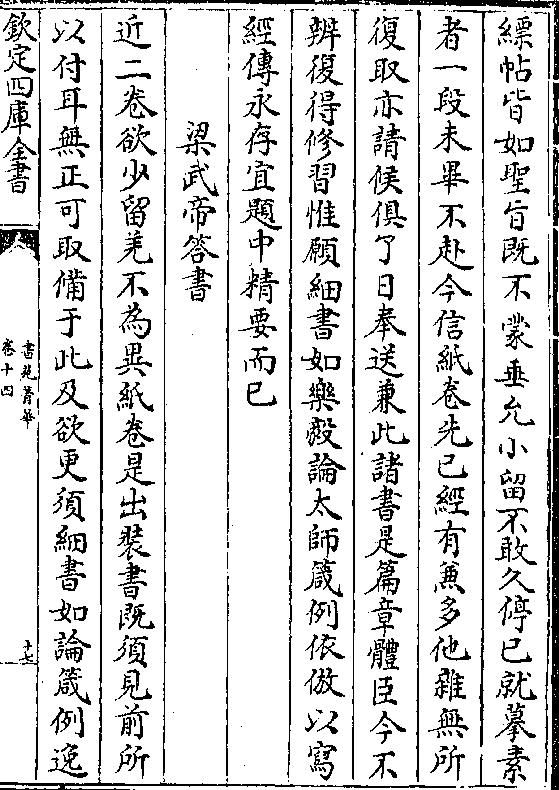 縹帖皆如聖旨既不蒙垂允小留不敢久停已就摹素
者一段未畢不赴今信紙卷先已經有兼多他雜無所
復取亦請俟俱了日奉送兼此諸書是篇章體臣今不
辨復得修習惟願細書如樂毅論太師箴例依倣以寫
經傳永存宜題中精要而已
梁武帝答書
近二卷欲少留差不為異紙卷是出裝書既須見前所
以付耳無正可取備于此及欲更須細書如論箴例逸
欽定四庫全書
書苑菁華
卷十四
十七